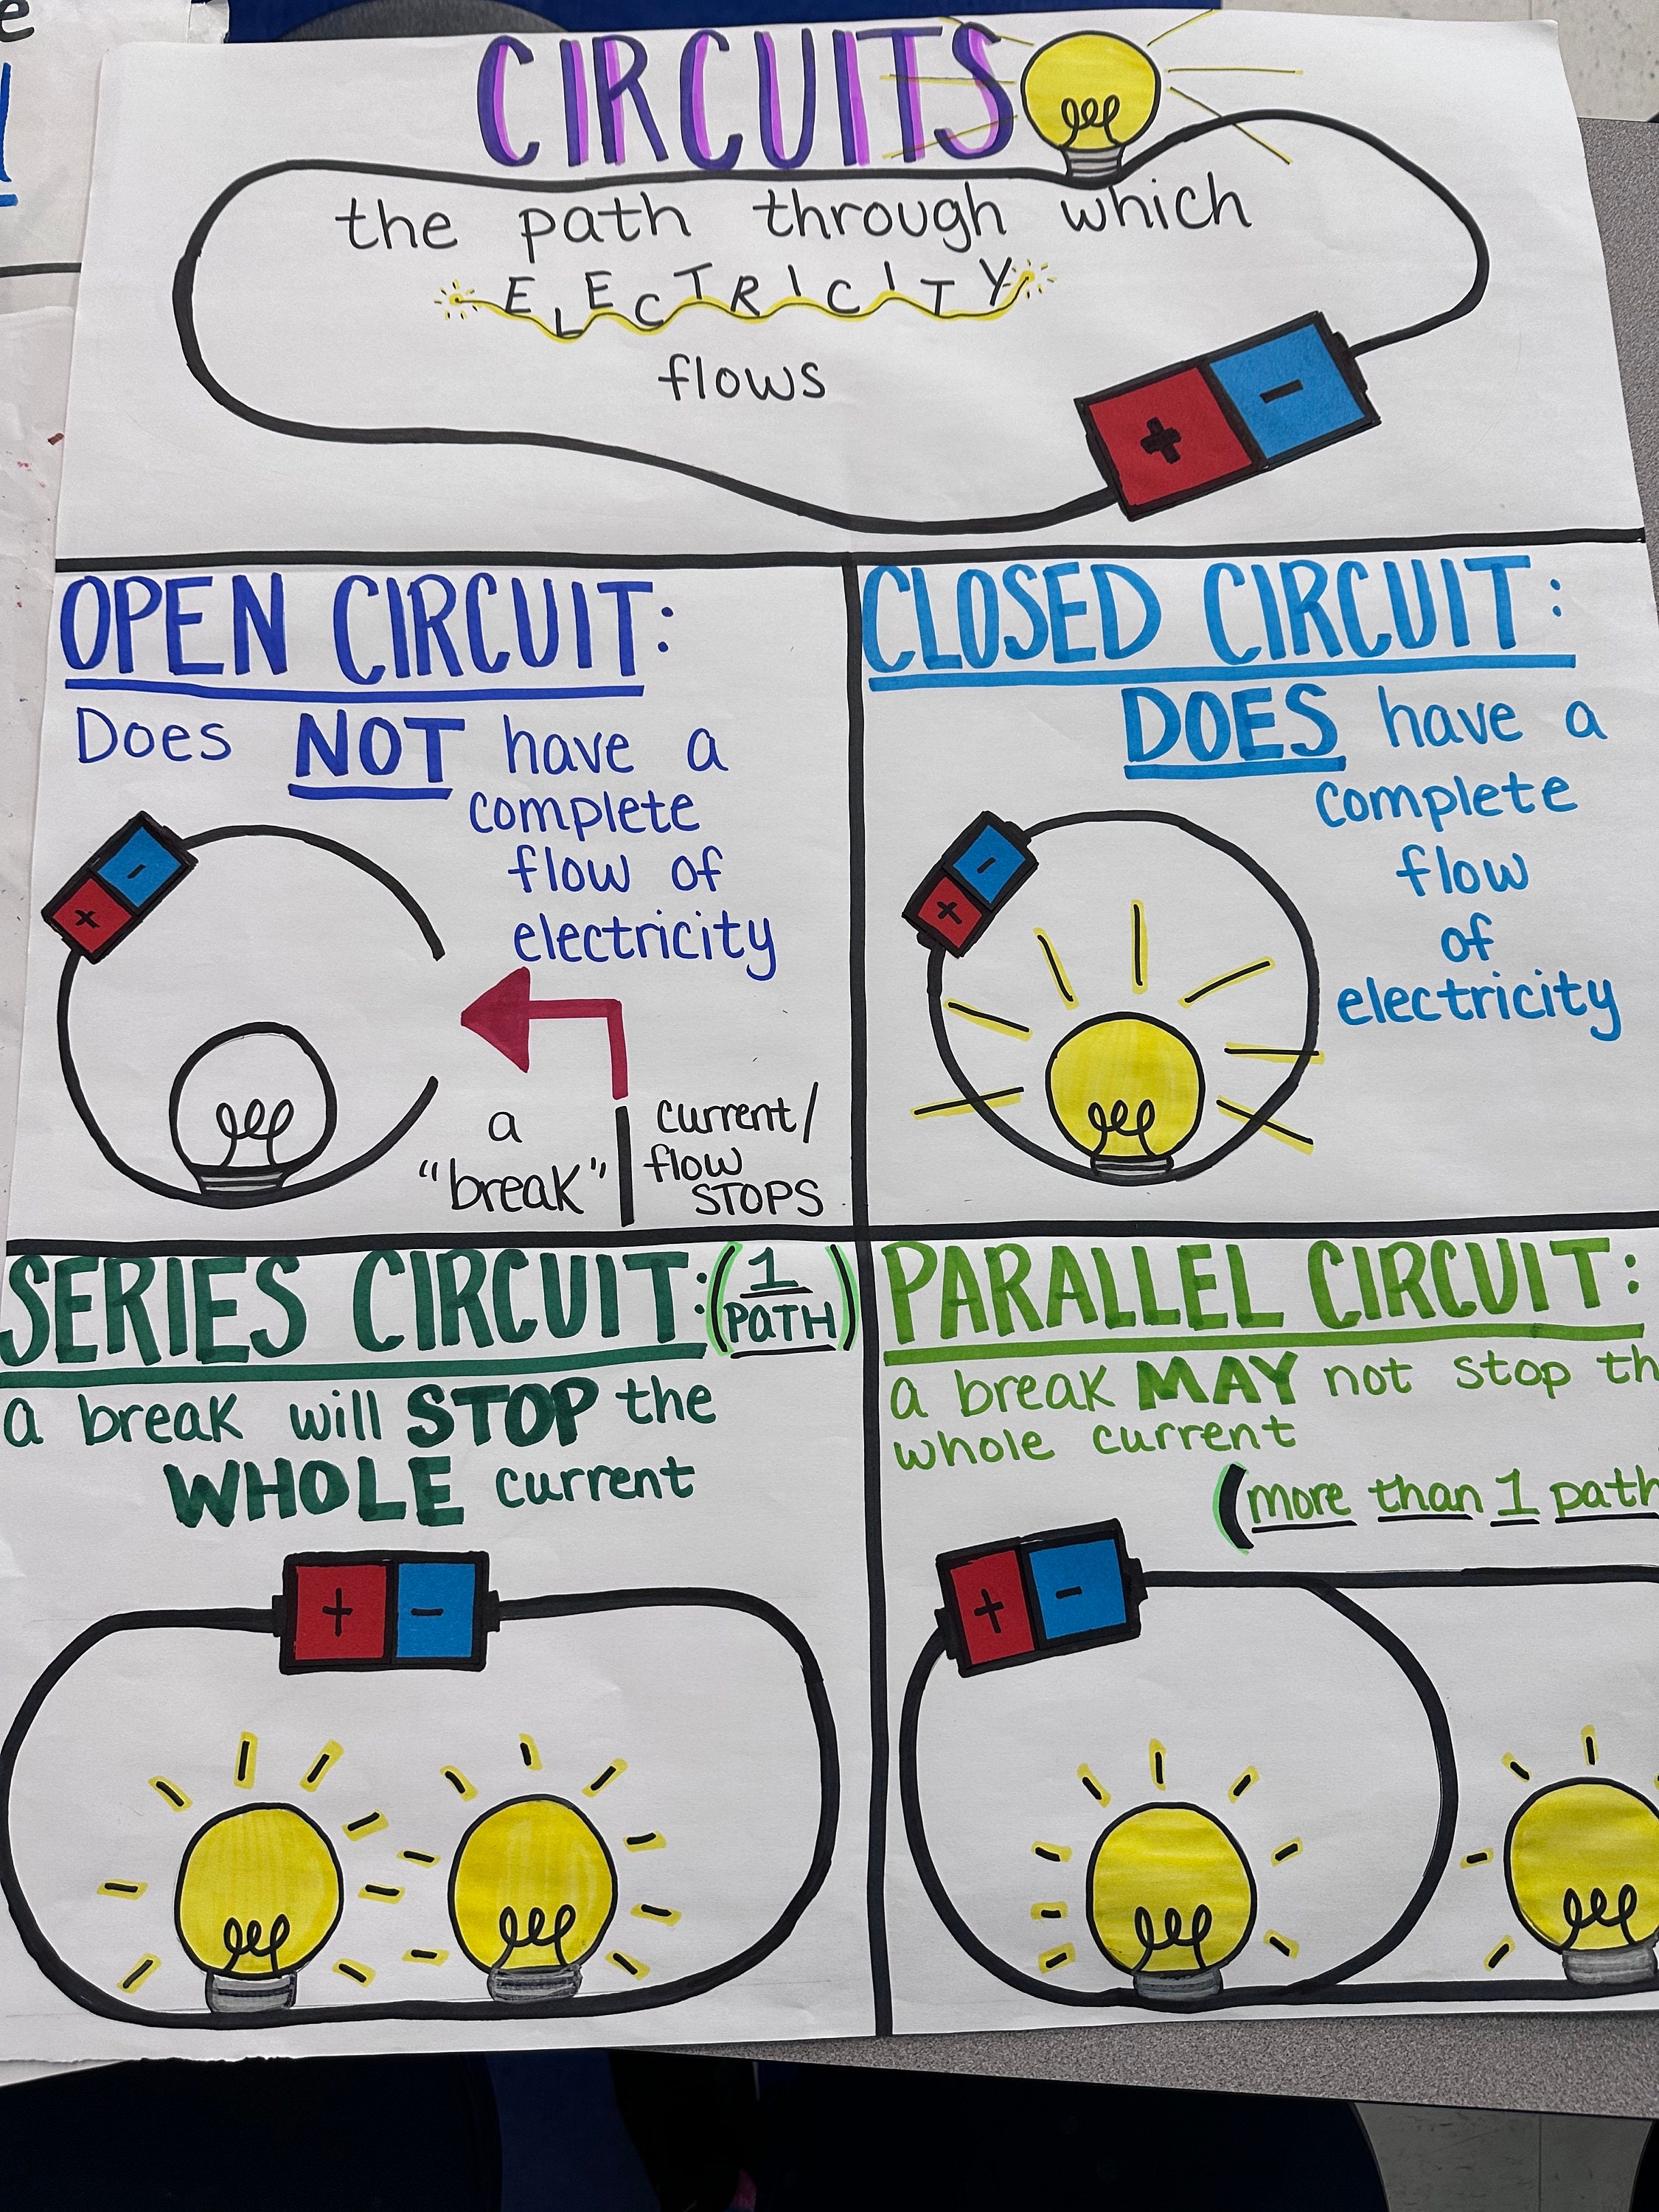 CIRCUITS
the path through which
ELECTRICITY
flows
+ -
OPEN CIRCUIT:
Does NOT have a
complete
flow of
electricity
- +
a
"break"
current/
flow
STOPS
CLOSED CIRCUIT:
DOES have a
complete
flow
of
electricity
- +
SERIES CIRCUIT: (1
PATH)
a break will STOP the
WHOLE current
+ -
PARALLEL CIRCUIT:
a break MAY not stop th
whole current
(more than 1 path
+ -